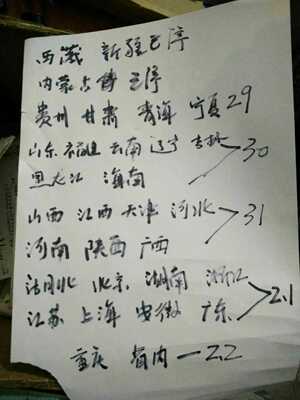 西藏 新疆已停
内蒙古 已停
贵州 甘肃 青海 宁夏 29
山东 福建 云南 辽宁 吉林 30
黑龙江 海南
山西 江西 天津 河北 31
河南 陕西 广西
湖北 北京 湖南 浙江 2.1
江苏 上海 安徽 广东
重庆 省内 — 2.2